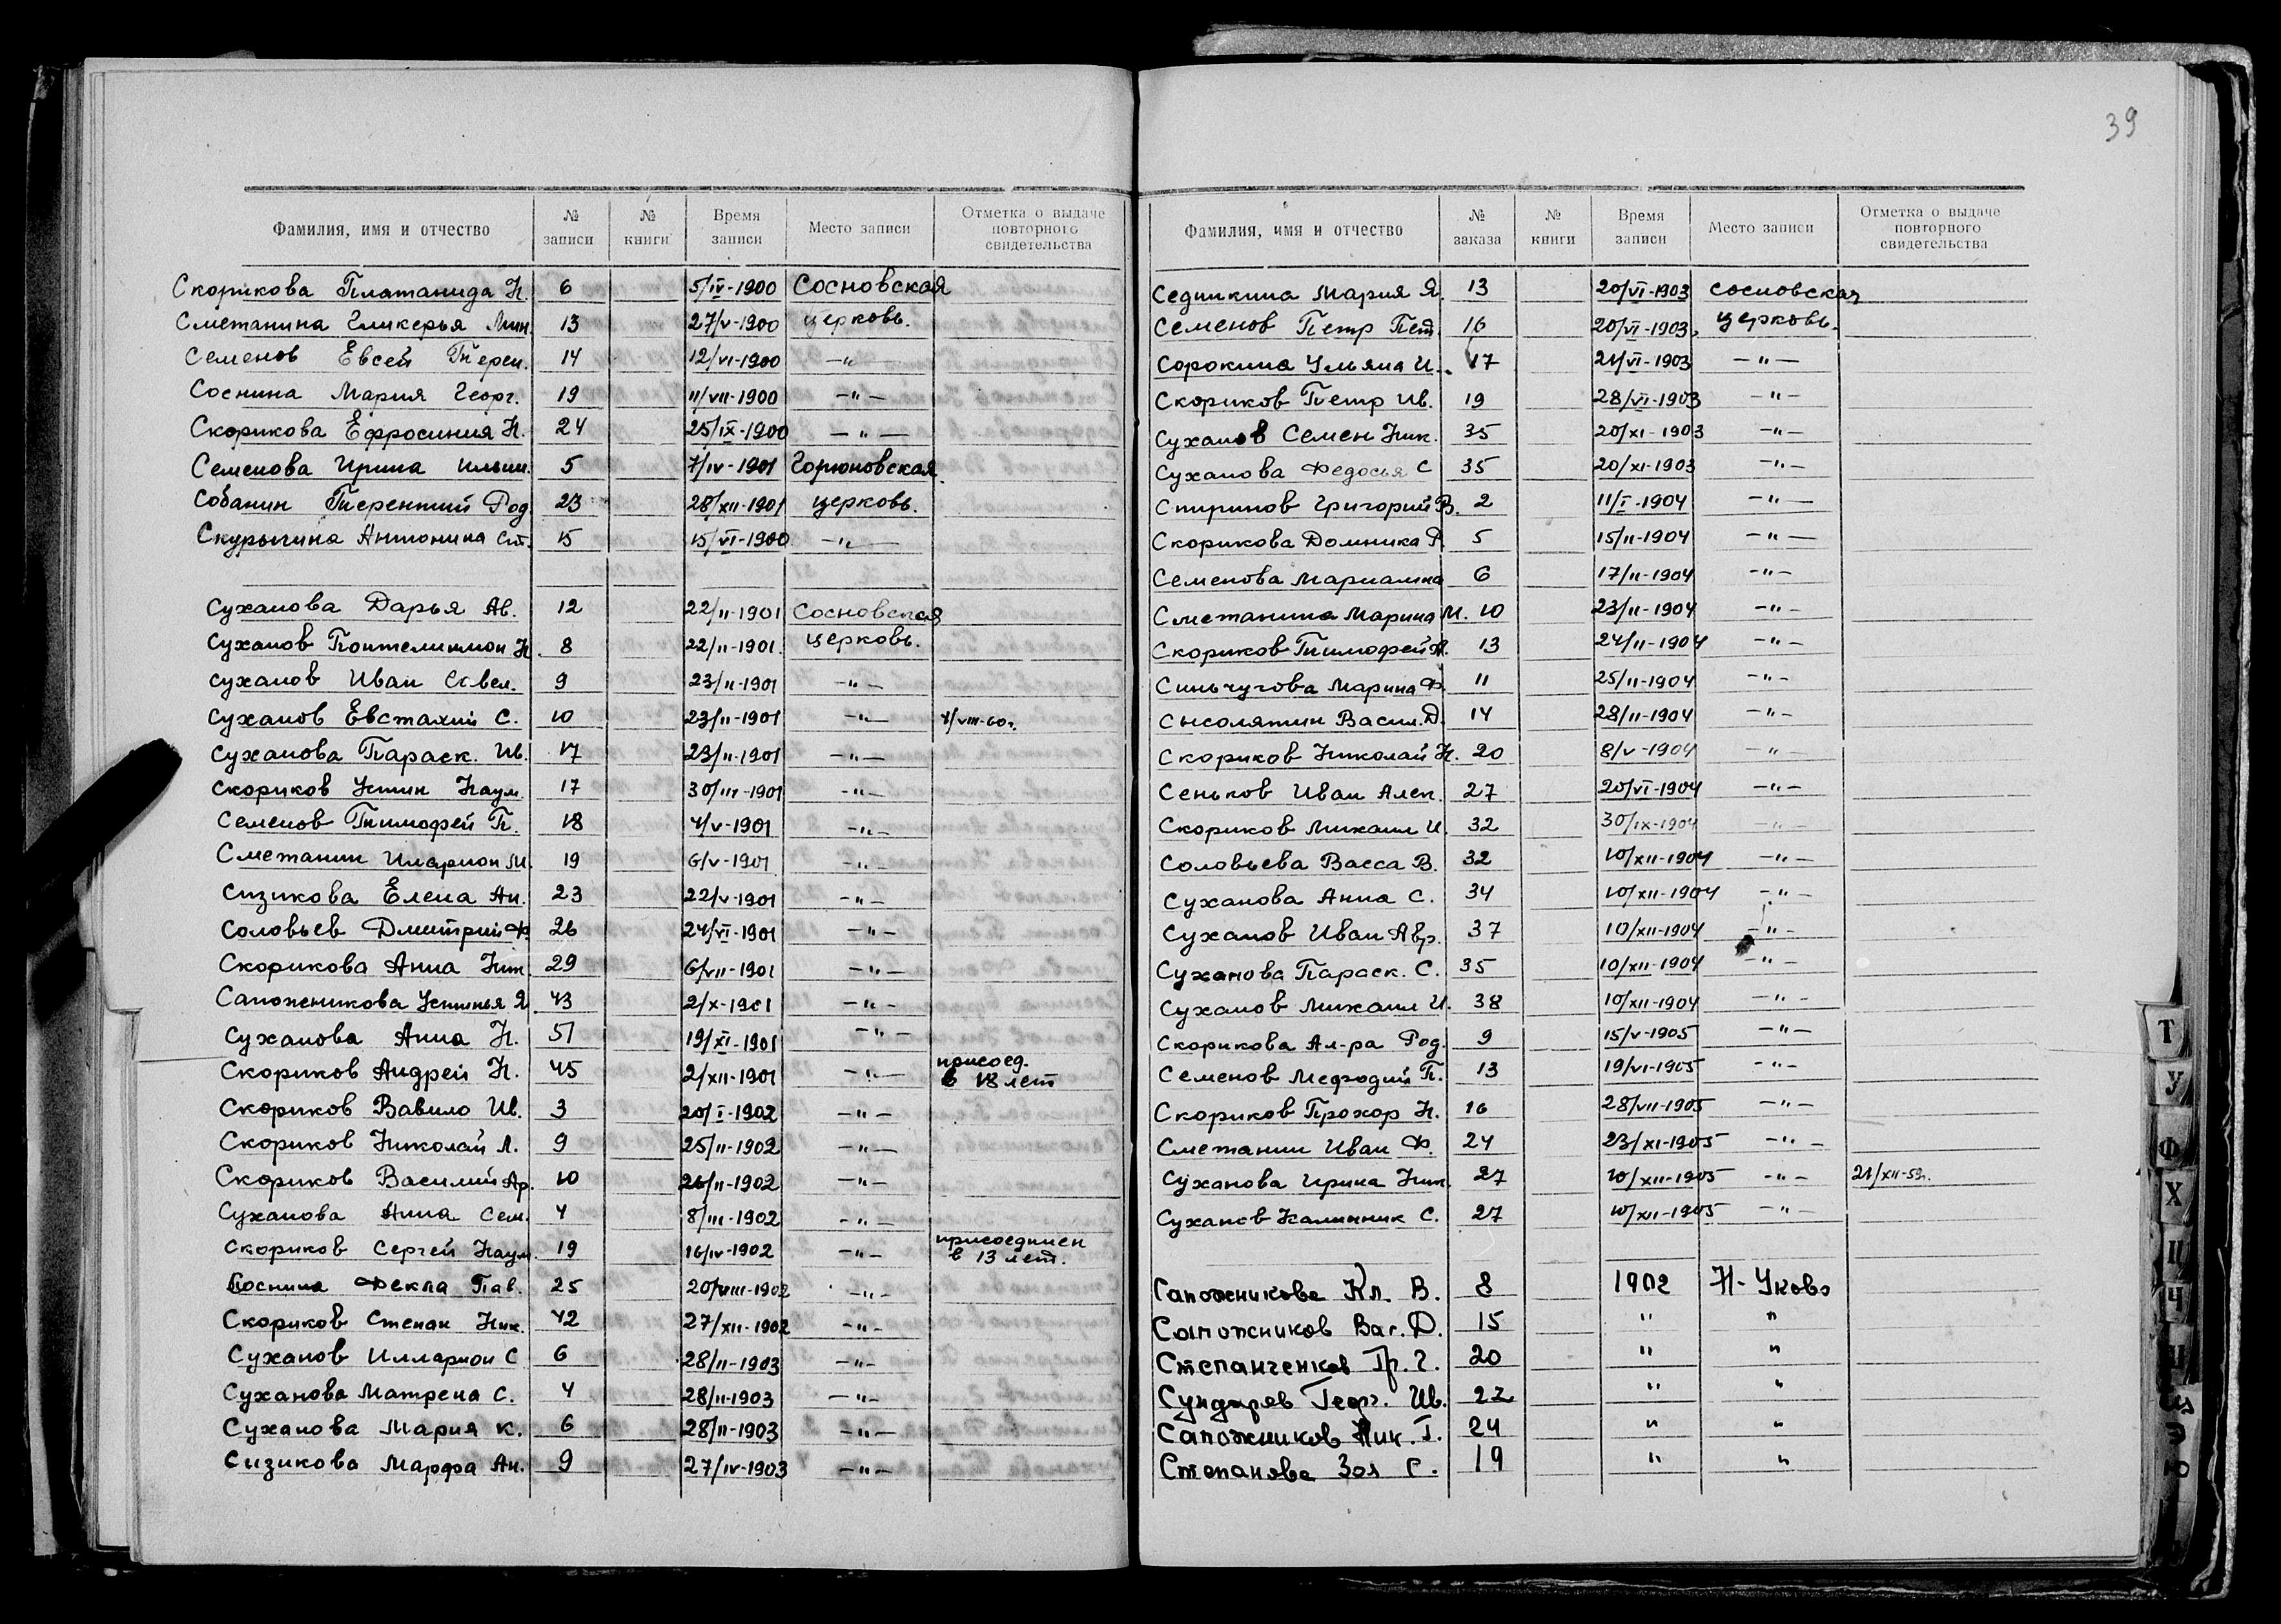 39
Фамилия, имя и отчество № записи № книги Время записи Место записи Отметка о выдаче повторного свидетельства
Скорикова Платанида Н. 6 5/IV-1900 Сосновская
Сметанина Гликерья Мин. 13 27/V-1900 церковь.
Семенов Евсей Терен. 14 12/VI-1900 —"—
Соснина Мария Георг. 19 11/VII-1900 —"—
Скорикова Ефросиния Н. 24 25/IX-1900 —"—
Семенова Ирина Ильин. 5 7/IV-1901 Горюновская
Собанин Терентий Род. 23 28/XII-1901 церковь.
Скурыгина Антонина Ст. 15 15/VI-1900 —"—
Суханова Дарья Ав. 12 22/II-1901 Сосновская
Суханов Понтелимон Н. 8 22/II-1901. церковь.
Суханов Иван Савел. 9 23/II-1901 —"—
Суханов Евстахий С. 10 23/II-1901 —"— 4/VIII-60г.
Суханова Параск. Ив. 17 23/II-1901 —"—
Скориков Устин Наум. 17 30/III-1901 —"—
Семенов Тимофей П. 18 4/V-1901 —"—
Сметанин Иларион М. 19 6/V-1901 —"—
Сизикова Елена Ан. 23 22/V-1901 —"—
Соловьев Дмитрий Ф. 26 24/VI-1901 —"—
Скорикова Анна Ник. 29 6/VII-1901 —"—
Сапожникова Устинья Я. 43 2/X-1901 —"—
Суханова Анна Н. 51 19/XI-1901 —"—
Скориков Андрей Н. 45 2/XII-1901 —"— присоед. в 18 лет
Скориков Вавило Ив. 3 20/I-1902 —"—
Скориков Николай Л. 9 25/II-1902 —"—
Скориков Василий Ар. 10 26/II-1902 —"—
Суханова Анна Сем. 4 8/III-1902 —"—
Скориков Сергей Наум. 19 16/IV-1902 —"— присоединен в 13 лет.
Соснина Фекла Пав. 25 20/VIII-1902 —"—
Скориков Степан Ник. 42 27/XII-1902 —"—
Суханов Илларион С 6 28/II-1903 —"—
Суханова Матрена С. 4 28/II-1903 —"—
Суханова Мария К. 6 28/II-1903 —"—
Сизикова Марфа Ан. 9 27/IV-1903 —"—
Фамилия, имя и отчество № заказа № книги Время записи Место записи Отметка о выдаче повторного свидетельства
Седикина Мария Я. 13 20/VI-1903 Сосновская
Семенов Петр Пет. 16 20/VI-1903 церковь.
Сорокина Ульяна И. 17 21/VI-1903 —"—
Скориков Петр Ив. 19 28/VI-1903 —"—
Суханов Семен Ник. 35 20/XI-1903 —"—
Суханова Федосья С 35 20/XI-1903 —"—
Спиринов Григорий В. 2 11/I-1904 —"—
Скорикова Домника Р. 5 15/II-1904 —"—
Семенова Мариамна 6 17/II-1904 —"—
Сметанина Марина М. 10 23/II-1904 —"—
Скориков Тимофей А. 13 24/II-1904 —"—
Синьчугова Марина Ф. 11 25/II-1904 —"—
Сысолятин Васил. Д. 14 28/II-1904 —"—
Скориков Николай Н. 20 8/V-1904 —"—
Сеньков Иван Алек. 27 20/VI-1904 —"—
Скориков Михаил И. 32 30/IX-1904 —"—
Соловьева Васса В. 32 10/XII-1904 —"—
Суханова Анна С. 34 10/XII-1904 —"—
Суханов Иван Авр. 37 10/XII-1904 —"—
Суханова Параск. С. 35 10/XII-1904 —"—
Суханов Михаил И. 38 10/XII-1904 —"—
Скорикова Ал-ра Род. 9 15/V-1905 —"—
Семенов Мефодий П. 13 19/VI-1905 —"—
Скориков Прохор Н. 16 28/VII-1905 —"—
Сметанин Иван Ф. 24 23/XI-1905 —"—
Суханова Ирина Ник. 27 10/XII-1905 —"— 21/XII-59г.
Суханов Калинник С. 27 10/XII-1905 —"—
Сапожникова Кл. В. 8 1902 Н-Уково
Сапожников Вас. Д. 15 " "
Степанченков Гр. Г. 20 " "
Сундарев Георг. Ив. 22 " "
Сапожников Ник. Г. 24 " "
Степанова Зоя С. 19 " "
Т
У
Ф
Х
Ц
Ч